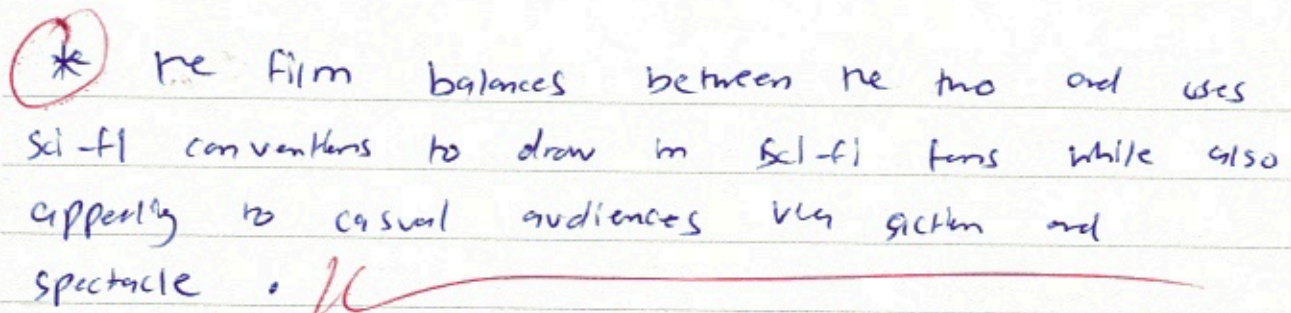 * the film balances between the two and uses
sci-fi conventions to draw in sci-fi fans while also
appealing to casual audiences via action and
spectacle .